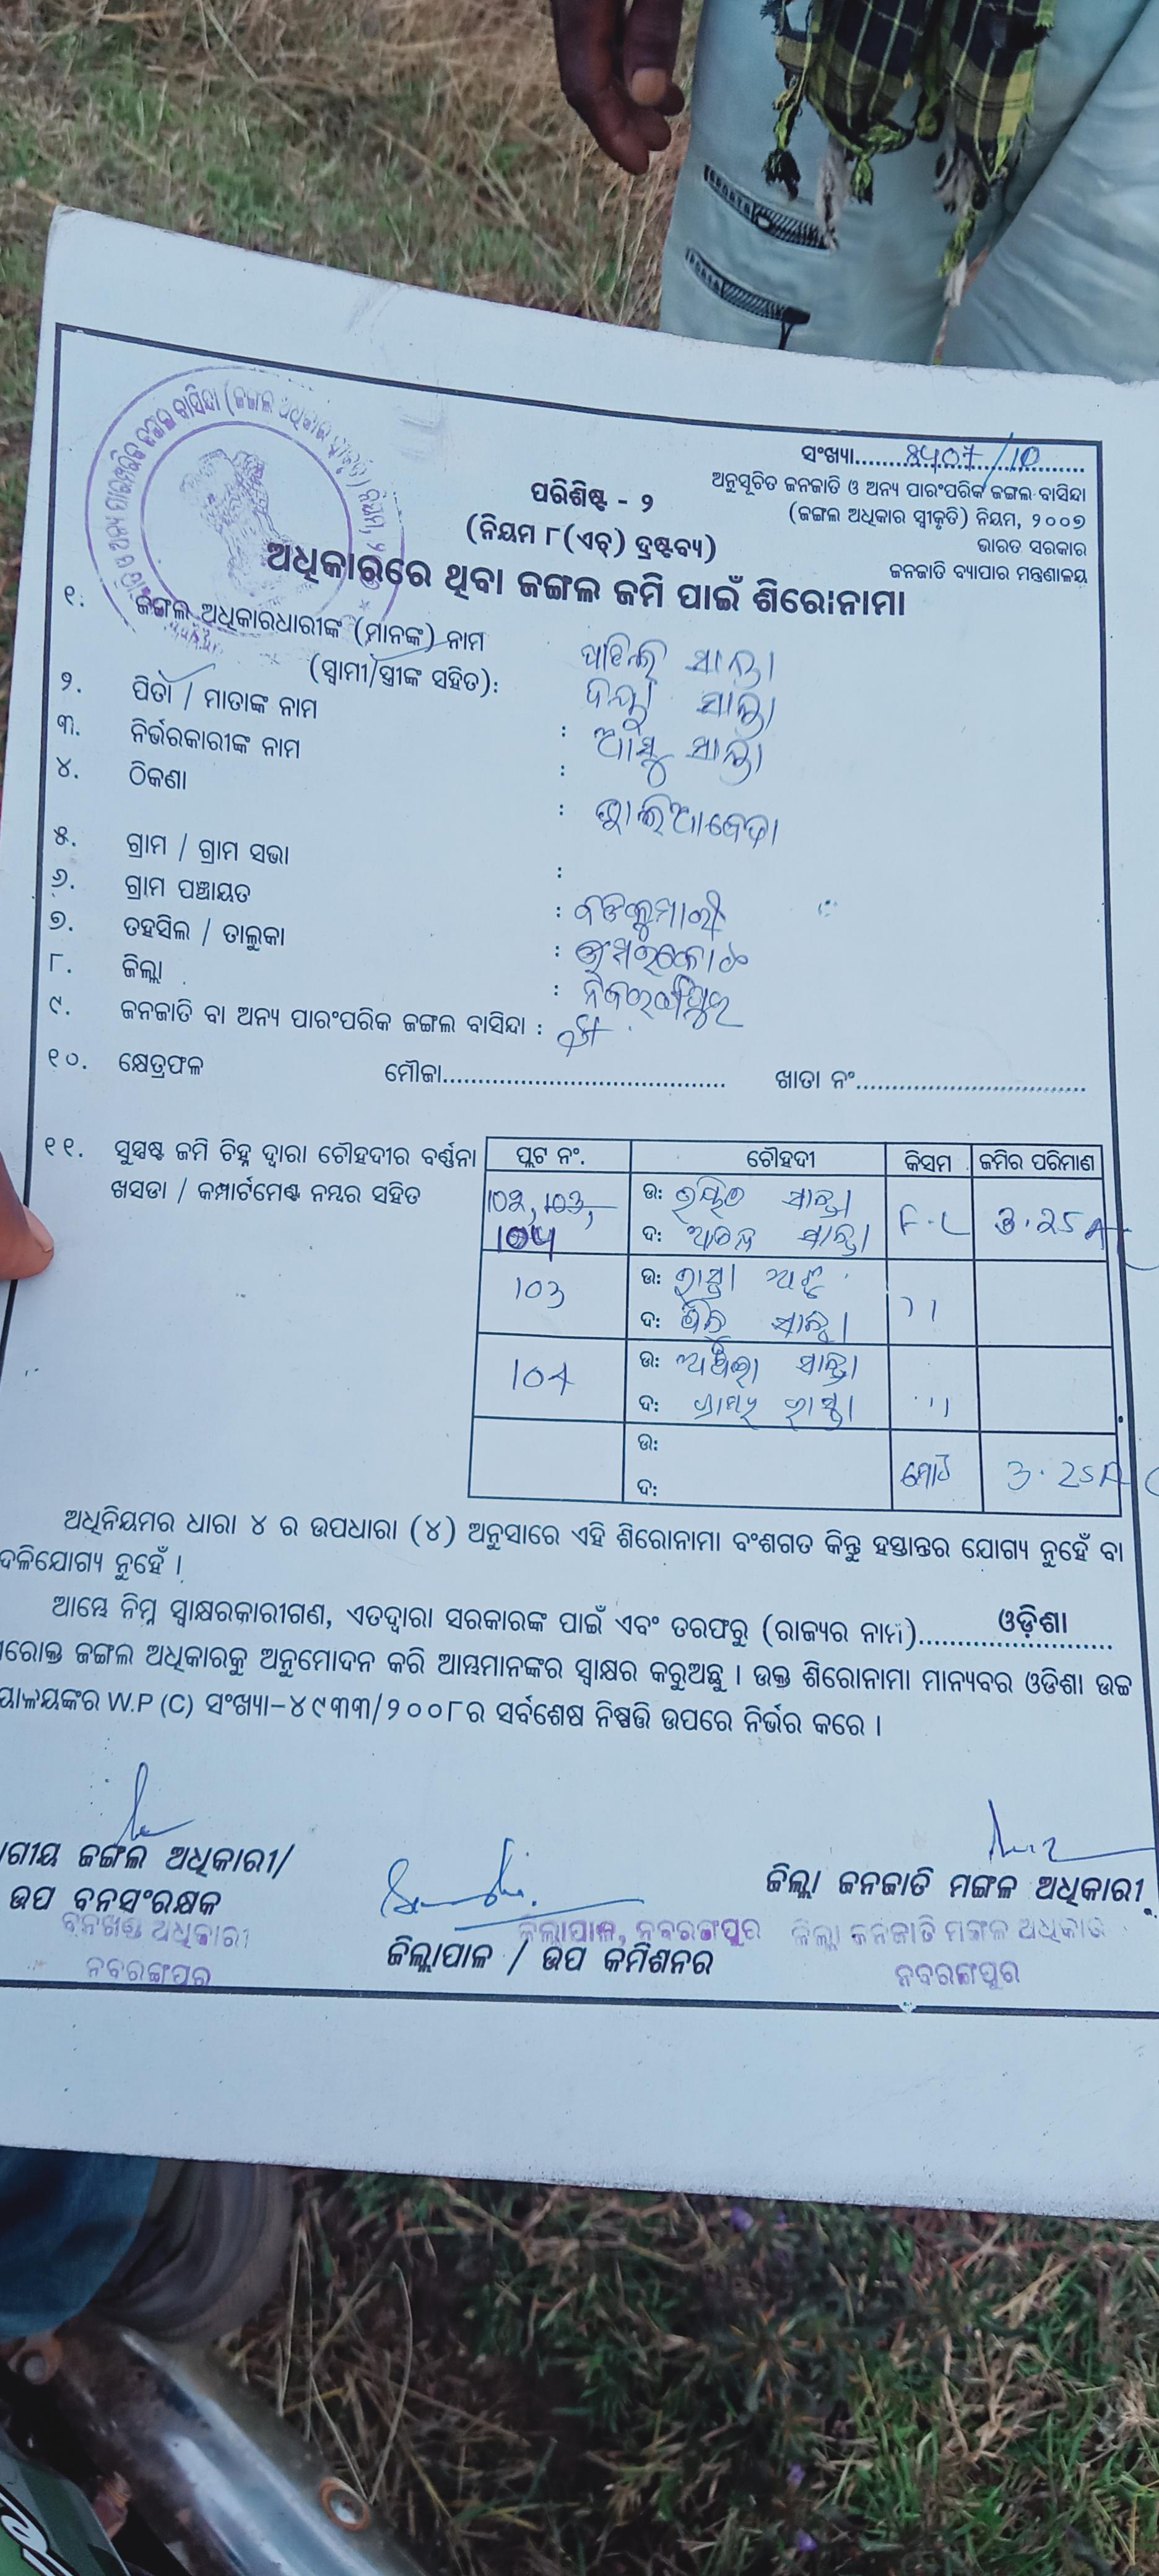 ସଂଖ୍ୟା................/10
ଅନୁସୂଚିତ ଜନଜାତି ଓ ଅନ୍ୟ ପାରଂପରିକ ଜଙ୍ଗଲ ବାସିନ୍ଦା
(ଜଙ୍ଗଲ ଅଧିକାର ସ୍ୱୀକୃତି) ନିୟମ, ୨୦୦୭
ଭାରତ ସରକାର
ଜନଜାତି ବ୍ୟାପାର ମନ୍ତ୍ରଣାଳୟ
ପରିଶିଷ୍ଟ - ୨
(ନିୟମ ୮(ଏଚ୍) ଦ୍ରଷ୍ଟବ୍ୟ)
ଅଧିକାରରେ ଥିବା ଜଙ୍ଗଲ ଜମି ପାଇଁ ଶିରୋନାମା
୧. ଜଙ୍ଗଲ ଅଧିକାରଧାରୀଙ୍କ (ମାନଙ୍କ) ନାମ
(ସ୍ୱାମୀ/ସ୍ତ୍ରୀଙ୍କ ସହିତ): ସାନ୍ତା
୨. ପିତା / ମାତାଙ୍କ ନାମ : ସାନ୍ତା
୩. ନିର୍ଭରକାରୀଙ୍କ ନାମ : ସାନ୍ତା
୪. ଠିକଣା :
୫. ଗ୍ରାମ / ଗ୍ରାମ ସଭା :
୬. ଗ୍ରାମ ପଞ୍ଚାୟତ :
୭. ତହସିଲ / ତାଲୁକା : ଉମରକୋଟ
୮. ଜିଲ୍ଲା : ନବରଙ୍ଗପୁର
୯. ଜନଜାତି ବା ଅନ୍ୟ ପାରଂପରିକ ଜଙ୍ଗଲ ବାସିନ୍ଦା :
୧୦. କ୍ଷେତ୍ରଫଳ ମୌଜା........................................ ଖାତା ନଂ.................................
୧୧. ସୁସ୍ପଷ୍ଟ ଜମି ଚିହ୍ନ ଦ୍ୱାରା ଚୌହଦୀର ବର୍ଣ୍ଣନା
ଖସଡା / କମ୍ପାର୍ଟମେଣ୍ଟ ନମ୍ବର ସହିତ
ପ୍ଲଟ ନଂ. ଚୌହଦୀ କିସମ ଜମିର ପରିମାଣ
ଉ: ସାନ୍ତା F.L 3.25A
104 ଦ: ସାନ୍ତା
103 ଉ: ରାସ୍ତା
ଦ: ସାନ୍ତା
104 ଉ: ସାନ୍ତା
ଦ: ଗ୍ରାମ୍ୟ ରାସ୍ତା
ଉ: ମୋଟ 3.25A
ଦ:
ଅଧିନିୟମର ଧାରା ୪ ର ଉପଧାରା (୪) ଅନୁସାରେ ଏହି ଶିରୋନାମା ବଂଶଗତ କିନ୍ତୁ ହସ୍ତାନ୍ତର ଯୋଗ୍ୟ ନୁହେଁ ବା
ଦଳିଯୋଗ୍ୟ ନୁହେଁ ।
ଆମ୍ଭେ ନିମ୍ନ ସ୍ୱାକ୍ଷରକାରୀଗଣ, ଏତଦ୍ୱାରା ସରକାରଙ୍କ ପାଇଁ ଏବଂ ତରଫରୁ (ରାଜ୍ୟର ନାମ)........ଓଡ଼ିଶା........
ରୋକ୍ତ ଜଙ୍ଗଲ ଅଧିକାରକୁ ଅନୁମୋଦନ କରି ଆମ୍ଭମାନଙ୍କର ସ୍ୱାକ୍ଷର କରୁଅଛୁ । ଉକ୍ତ ଶିରୋନାମା ମାନ୍ୟବର ଓଡିଶା ଉଚ୍ଚ
ୟାଳୟଙ୍କର W.P (C) ସଂଖ୍ୟା-୪୯୩୩/୨୦୦୮ର ସର୍ବଶେଷ ନିଷ୍ପତ୍ତି ଉପରେ ନିର୍ଭର କରେ ।
ଗୀୟ ଜଙ୍ଗଲ ଅଧିକାରୀ/
ଉପ ବନସଂରକ୍ଷକ
ବନଖଣ୍ଡ ଅଧିକାରୀ
ନବରଙ୍ଗପୁର
ଜିଲ୍ଲାପାଳ, ନବରଙ୍ଗପୁର
ଜିଲ୍ଲାପାଳ / ଉପ କମିଶନର
ଜିଲ୍ଲା ଜନଜାତି ମଙ୍ଗଳ ଅଧିକାରୀ
ଜିଲ୍ଲା ଜନଜାତି ମଙ୍ଗଳ ଅଧିକାରୀ
ନବରଙ୍ଗପୁର